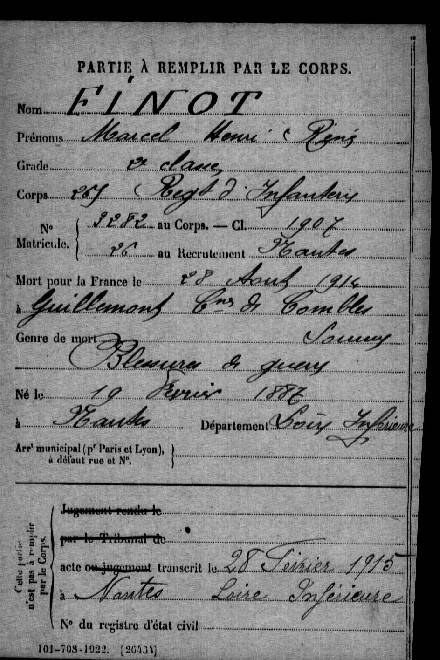 PARTIE À REMPLIR PAR LE CORPS.
Nom FINOT
Prénoms Marcel Henri Régis
Grade 2e classe
Corps 265 Regt d'Infanterie
Nº 9282 au Corps. — Cl. 1907
Matricule. 26 au Recrutement Nantes
Mort pour la France le 28 Aout 1914
à Guillemont Cne de Combles
Genre de mort Somme
Blessures de guerre
Né le 19 Février 1887
à Nantes Département Loire Inférieure
Arrt municipal (pr Paris et Lyon),
à défaut rue et Nº.
Cette partie
n'est pas à remplir
par le Corps.
Jugement rendu le
par le Tribunal de
acte ou jugement transcrit le 28 Février 1915
à Nantes Loire Inférieure
Nº du registre d'état civil
101-708-1922. [26434]